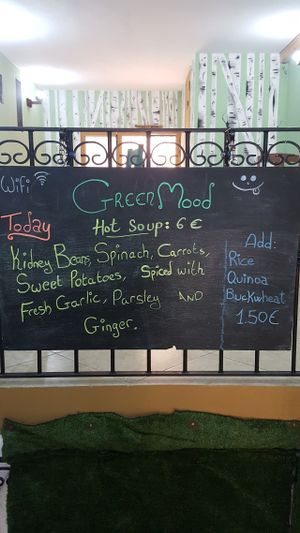 WiFi
GREEN MOOD
Today
Hot Soup: 6 €
Kidney Beans, Spinach, Carrots,
Sweet Potatoes, Spiced with
Fresh Garlic, Parsley AND
Ginger.
Add:
Rice
Quinoa
Buckwheat
1.50€